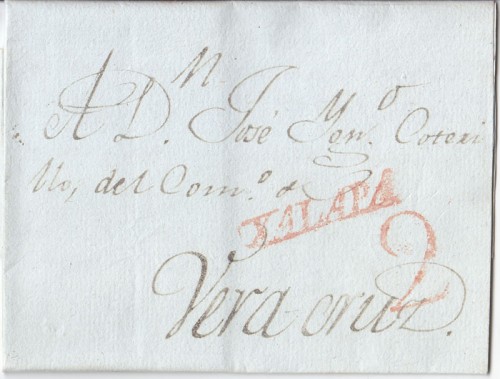 A D.n José Ygn.o Coteri
llo, del Com.o de
XALAPA
2
Vera cruz.